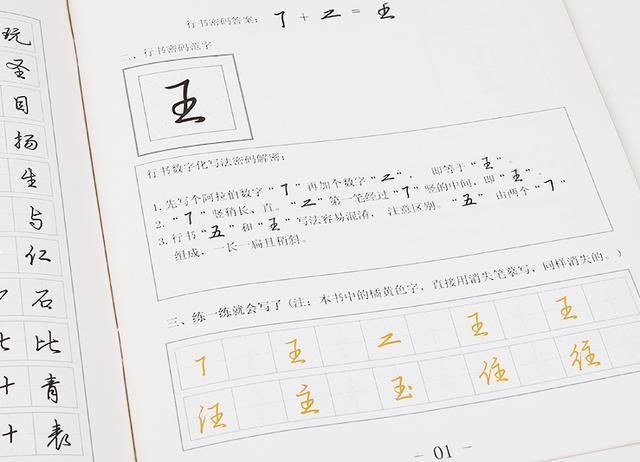 玩
圣
目
扬
生
与
仁
石
比
十 青
十 表
行书密码答案：了 + 二 = 王
二、行书密码范字
王
行书数字化写法密码解密：
1. 先写个阿拉伯数字“了”再加个数字“二”， 即等于“王”。
2. “了”竖稍长，直。“二”第一笔经过“了”竖的中间，即“王”。
3. 行书“五”和“王”写法容易混淆，注意区别。“五”由两个“了”
组成，一长一扁且稍斜。
三、练一练就会写了（注：本书中的橘黄色字，直接用消失笔摹写，同样消失的。）
了 王 二 王 王
汪 主 玉 住 往
- 01 -